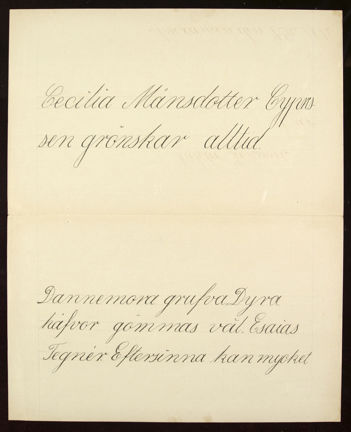 Cecilia Månsdotter Cypres
sen grönskar alltid.
Dannemora grufva. Dyra
håfvor gömmas väl. Esaias
Tegnér Eftersinna kan mycket